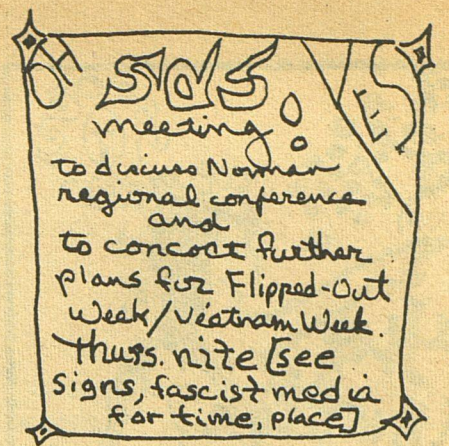 OH
YES
sds!
meeting
to discuss Norman
regional conference
and
to concoct further
plans for Flipped-Out
Week/Vietnam Week.
Thurs. nite [see
signs, fascist media
for time, place]